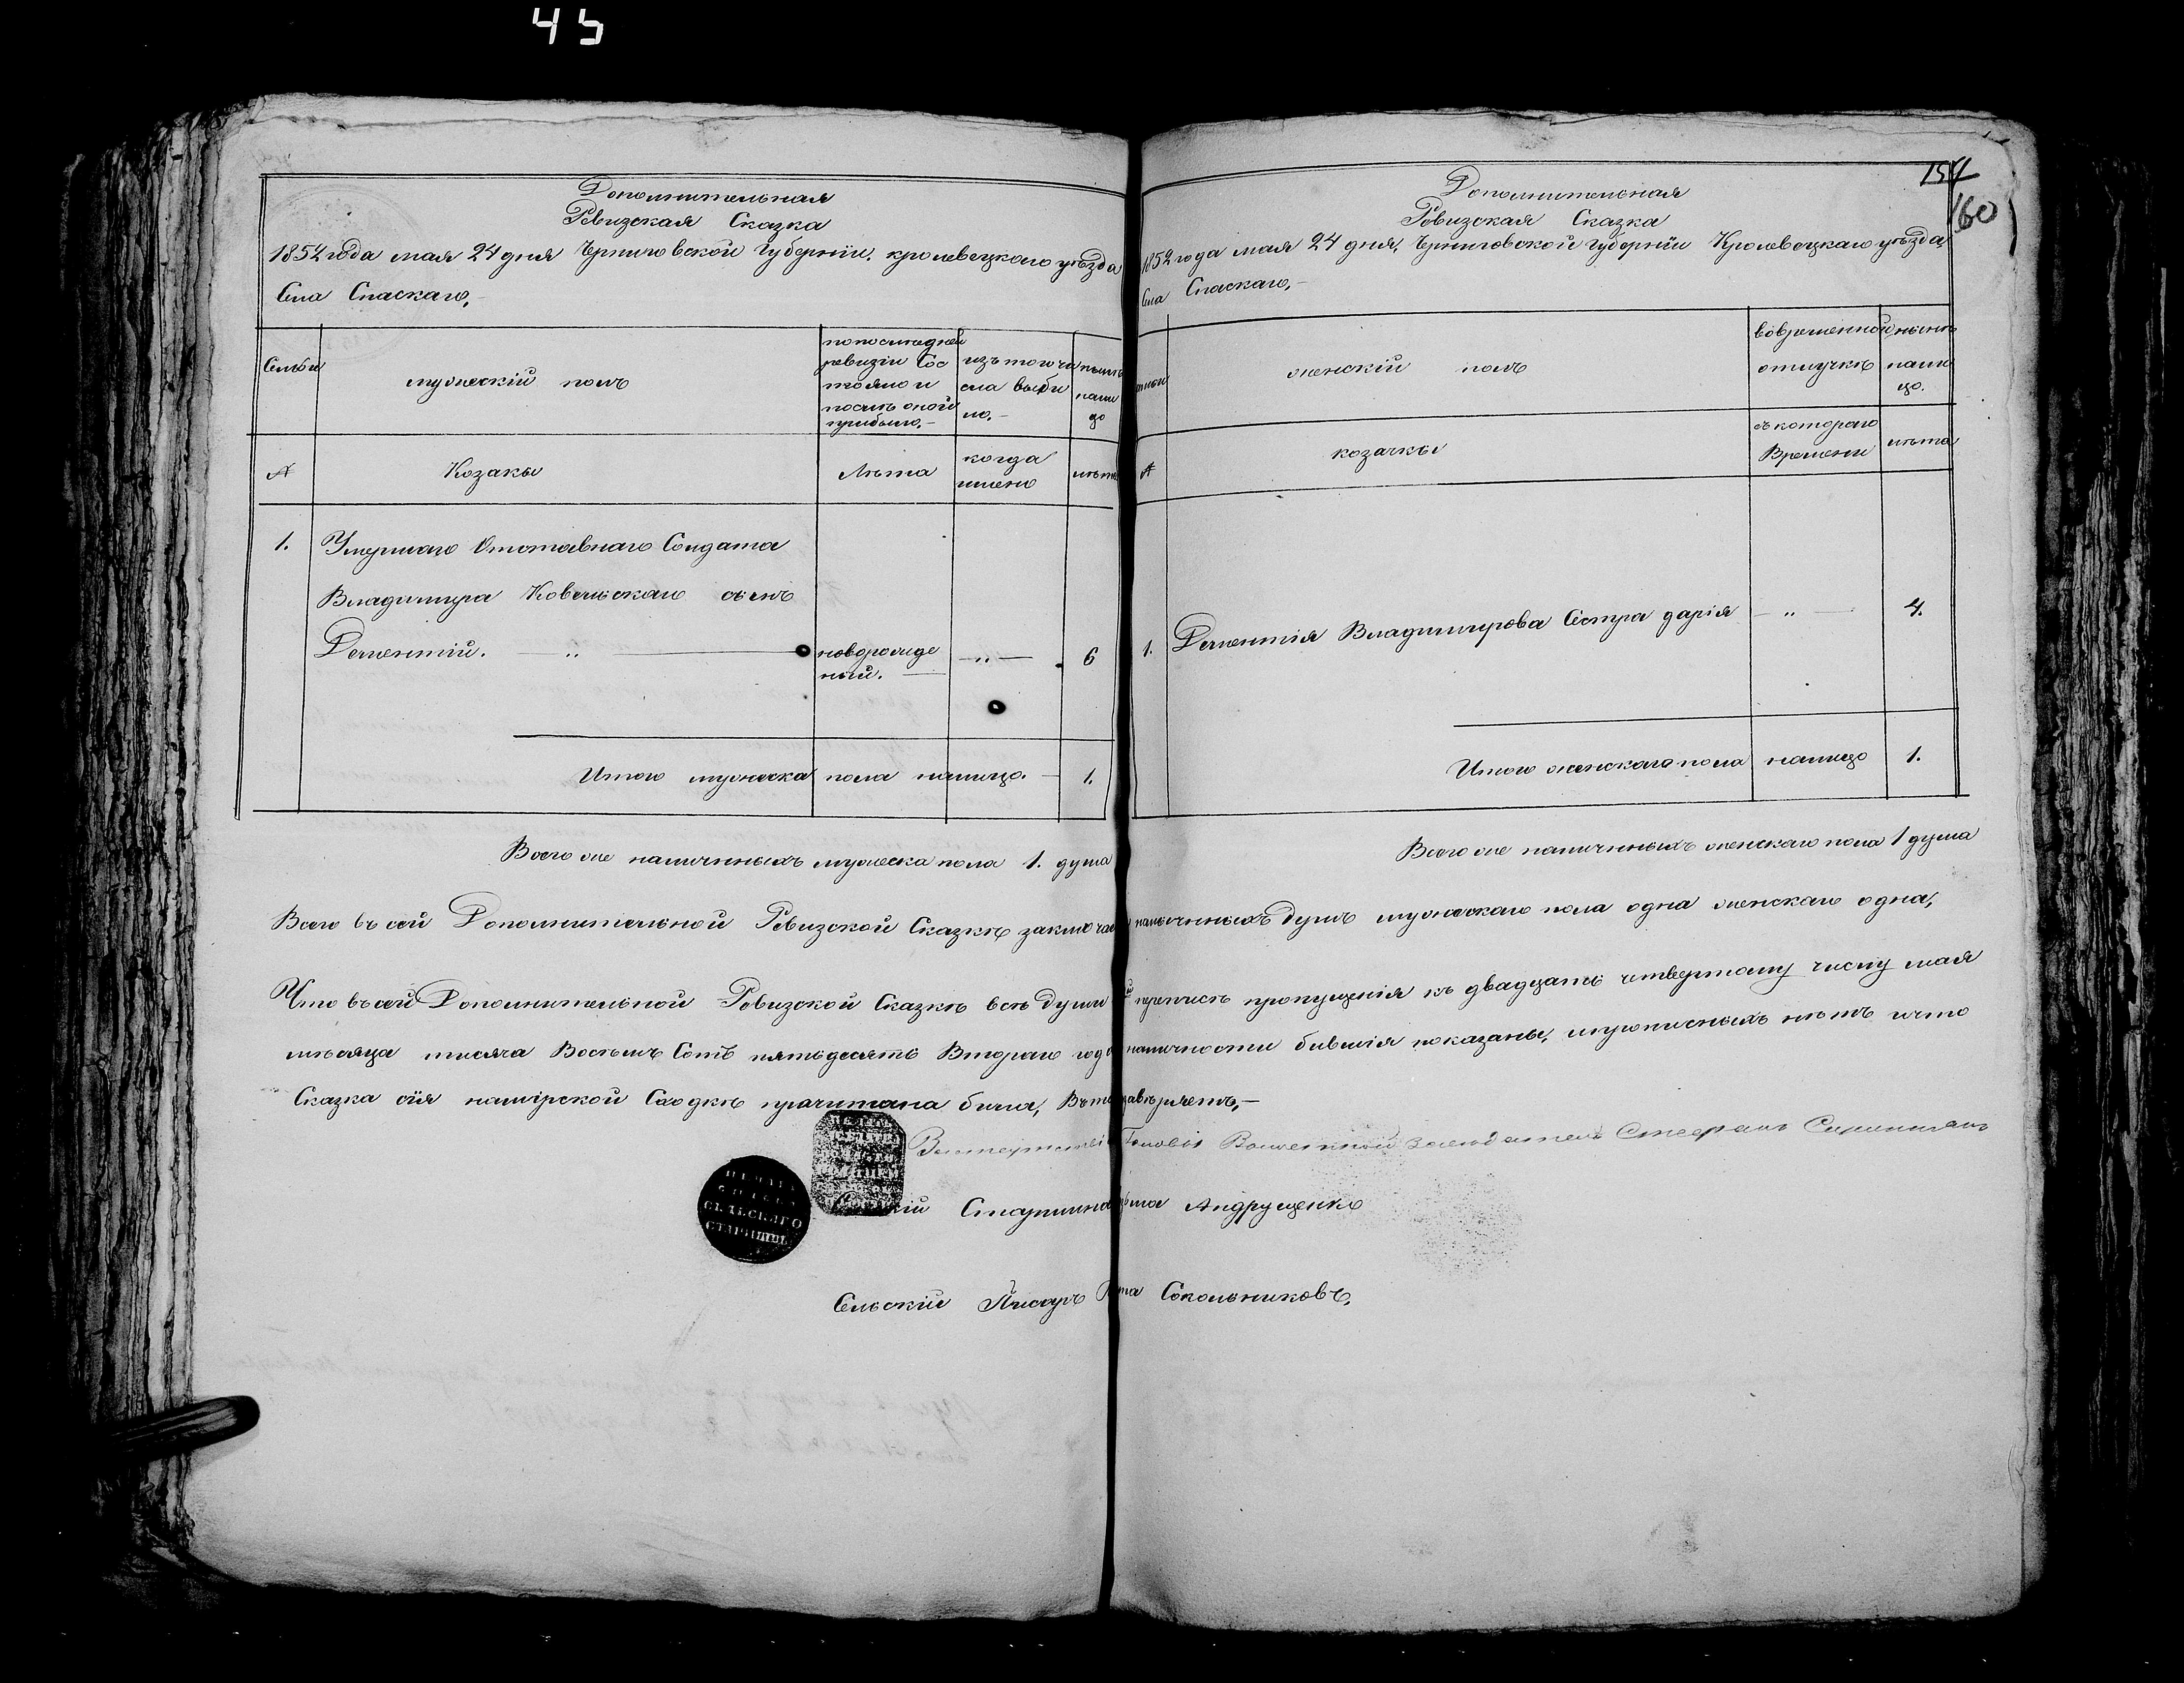 45
Дополнительная
Ревизская Сказка
1852 года мая 24 дня Черниговской Губернїи, кролевецкаго уѣзда
Села Спаскаго,
Семьи
мужескїй полъ
попоследней
ревизїи Сос
тояло и
послѣ оной
прибыло,
изътого чи
сла выби
ло,
нынѣ
нали
цо
№
Козаки
Лѣта
когда
имено
лѣта
1. Умершаго Отставнаго Солдата
Владимира Ковельскаго сынъ
Дементїй. новорожде
ный. 6
Итого мужеска пола налицо. 1.
Всего же наличныхъ мужеска пола 1. душа
154
160
Дополнительная
Ревизская Сказка
1852 года мая 24 дня, Черниговской Губернїи Кролевецкаго уѣзда
Села Спаскаго,
женскїй полъ
вовременной
отлучкѣ
нынѣ
нали
цо.
№
козачки
съ котораго
Времени
лѣта
1. Дементїя Владимирова Сестра дарїя 4.
Итого женскаго пола налицо 1.
Всего же наличныхъ женскаго пола 1 душа
Всего въ сей Дополнительной Ревизской Сказкѣ заключае наличныхъ душъ мужескаго пола одна женскаго одна,
Что въ сей Дополнительной Ревизской Сказкѣ всѣ души перепись пропущенїя къ двадцать четвертому числу мая
мѣсяца тисяча Восѣмъ Сотъ пятьдесятъ Втораго года наличности бившїя показаны, и прописныхъ нѣтъ и что
Сказка сїя намїрской Сходкѣ прачитана била, Въ завѣряетъ,
Головы Стефанъ
Сельскїй Старшина Андрущенко
СЕЛЬСКАГО
СТАРШИНЫ
Сельскїй Писарь Сокольниковъ,